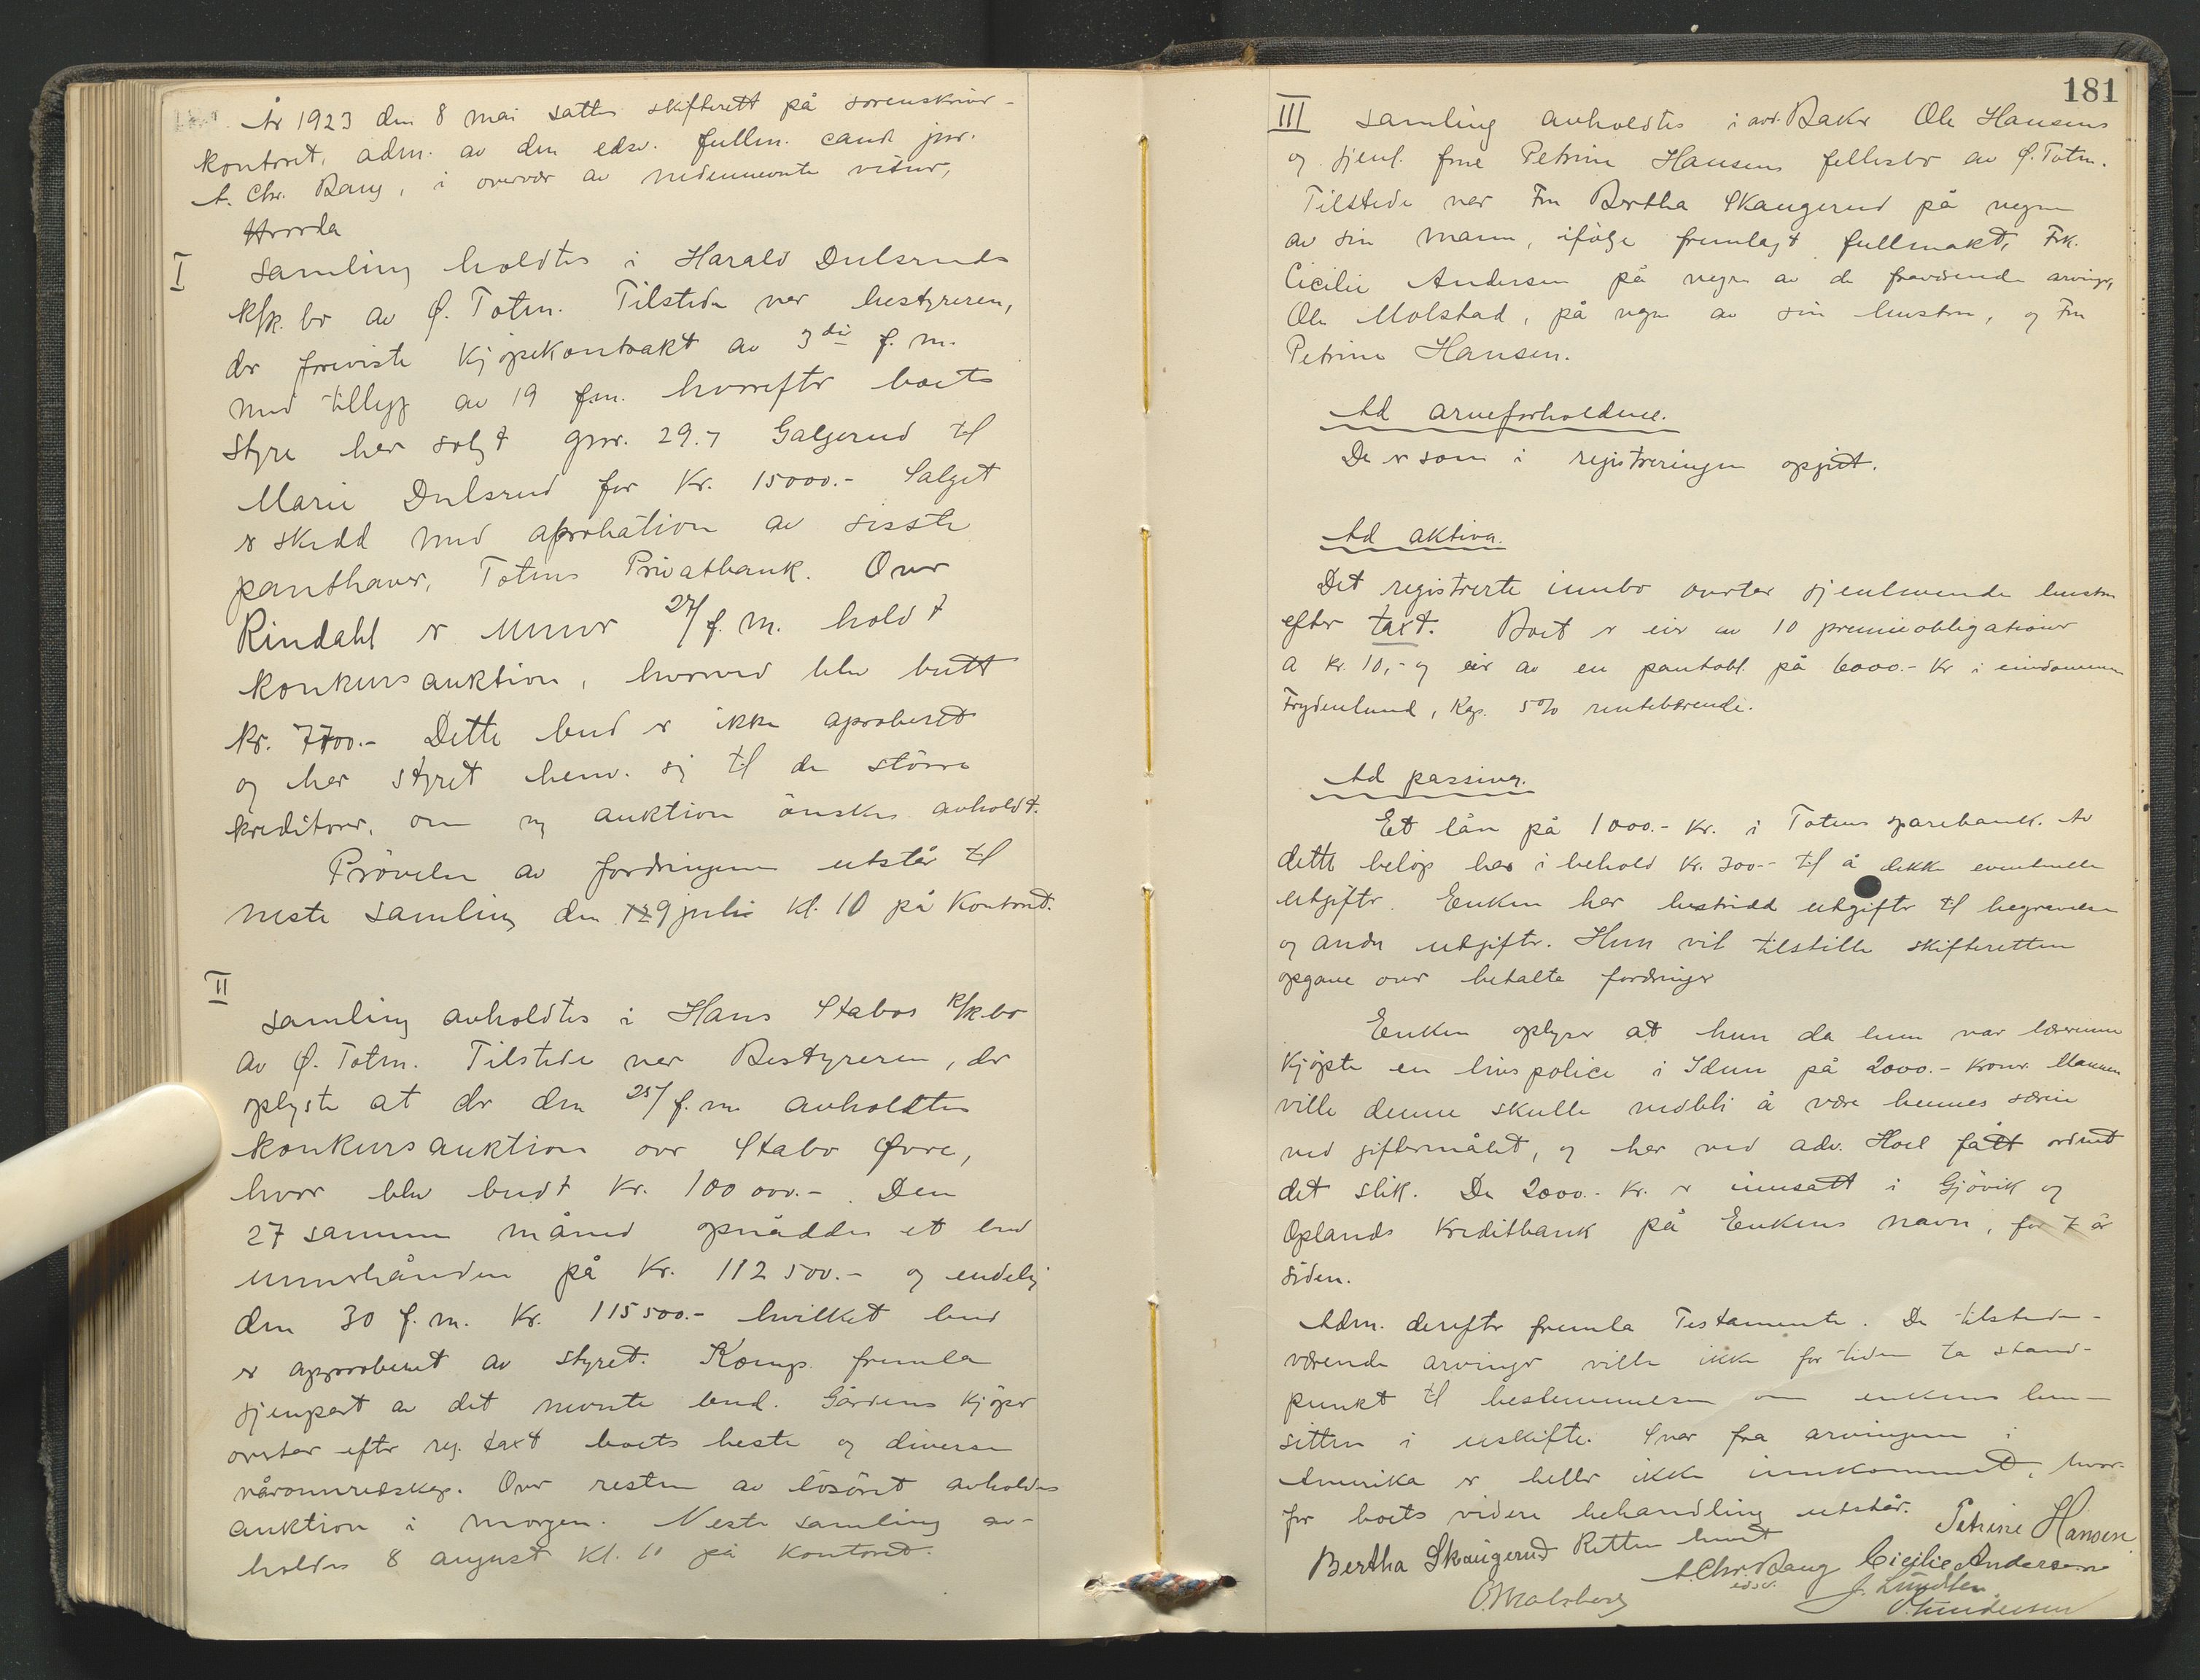 År 1923 den 8 mai sattes skifterett på sorenskriver-
kontoret, adm. av den edsv. fullm. cand. jur.
A. Chr. Bang, i overvær av nedennevnte vidner,
Hvorda
I Samling holdtes i Harald Dulsruds
k/k. bo av Ø. Toten. Tilstede var bestyreren,
der foreviste kjøpekontrakt av 3die f. m.
med tillegg av 19 f.m. hvorefter boets
styre har solgt gnr. 29.7 Galgerud til
Marie Dulsrud for Kr. 15000.- Salget
er skedd med aprobation av sisste
panthaver, Totens Privatbank. Over
Rindahl er unner 27/ f. m. holdt
konkursauktion, hvorved blev butt
kr. 7700.- Dette bud er ikke aproberet
og har styret henv. sig til de større
kreditorer, om ny auktion ønskes avholdt.
Prøvelse av fordringene utstår til
neste samling den 9 juli kl. 10 på Kontoret.
II
Samling avholdtes i Hans Stabos k/k.bo
av Ø. Toten. Tilstede var Bestyreren, der
oplyste at der den 25/ f. m. avholdtes
konkursauktion over Stabo Øvre,
hvor blev budt Kr. 100 000.-. Den
27 samme måned opnåddes et bud
unnerhånden på Kr. 112 500.- og endelig
den 30 f. m. Kr. 115 500.- hvilket bud
er approberet av styret. Komp. fremla
gjenpart av det nevnte bud. Gårdens kjøper
overtar efter reg. taxt boets heste og diverse
våronnredskap. Over resten av løsøret avholdes
auktion i morgen. Neste samling av-
holdes 8 august kl. 11 på Kontoret.
181
III Samling avholdtes i avd. Baker Ole Hansens
og gjenl. frue Petrine Hansens fellesbo av Ø. Toten.
Tilstede var Fru Bertha Skaugerud på vegne
av sin mann, ifølge fremlagt fullmakt, Frk.
Cicilie Andersen på vegne av de fraværende arvinger,
Ole Molstad, på vegne av sin hustru, og Fru
Petrine Hansen.
Ad arveforholdene.
De er som i registreringen opgitt.
Ad aktiva.
Det registrerte innbo overtar gjenlevende hustru
efter taxt. Boet er eier av 10 premieobligationer
a kr. 10,- og eier av en pantobl. på 6000.- Kr i eiendommen
Frydenlund, Kap. 5% rentebærende.
Ad passiva.
Et lån på 1000.- Kr. i Totens sparebank. Av
dette beløp has i behold Kr. 300.- til å dekke eventuelle
utgifter. Enken har bestridd utgifter til begravelse
og andre utgifter. Hun vil tilstille skifteretten
opgave over betalte fordringer
Enken oplyser at hun da hun var lærerinne
kjøpte en livspolice i Idun på 2000.- kroner. Mannen
ville denne skulle vedbli å være hennes særeie
ved giftermålet, og har ved adv. Hoel fått ordnet
det slik. De 2000.- Kr. er innsatt i Gjøvik og
Oplands Kreditbank på Enkens navn, for 7 år
siden.
Adm. derefter fremla Testamente. De tilstede-
værende arvinger ville ikke for tiden ta stand-
punkt til bestemmelsen om enkens hen-
sitten i uskifte. Svar fra arvingene i
Amerika er heller ikke innkommet, hvor-
for boets videre behandling utstår.
Retten hevet
Petrine Hansen
Bertha Skaugerud
A. Chr. Bang
edsv.
Cicilie Andersen